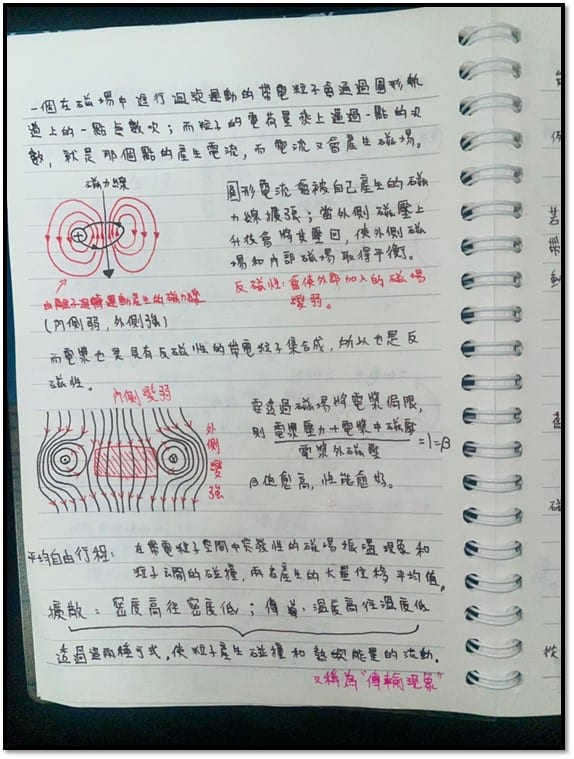 一個在磁場中進行迴旋運動的帶電粒子會通過圓形軌
道上的一點無數次；而粒子的電荷量乘上通過一點的次
數，就是那個點的產生電流，而電流又會產生磁場。
磁力線
圓形電流會被自己產生的磁
力線擴張；當外側磁壓上
升後會將其壓回，使外側磁
場和內部磁場取得平衡。
反磁性：會使外部加入的磁場
變弱。
由離子迴旋運動產生的磁力線
(內側弱，外側強)
而電漿也是具有反磁性的帶電粒子集合成，所以也是反
磁性。
內側變弱
外側變強
要透過磁場將電漿侷限，
則 電漿壓力+電漿中磁壓
電漿外磁壓 =1=β
β值愈高，性能愈好。
平均自由行程：在帶電粒子空間中突發性的磁場振盪現象和
粒子之間的碰撞，兩者產生的大量位移平均值。
擴散：密度高往密度低；傳導：溫度高往溫度低
透過這兩種方式，使粒子產生碰撞和熱的能量的流動。
又稱為"傳輸現象"